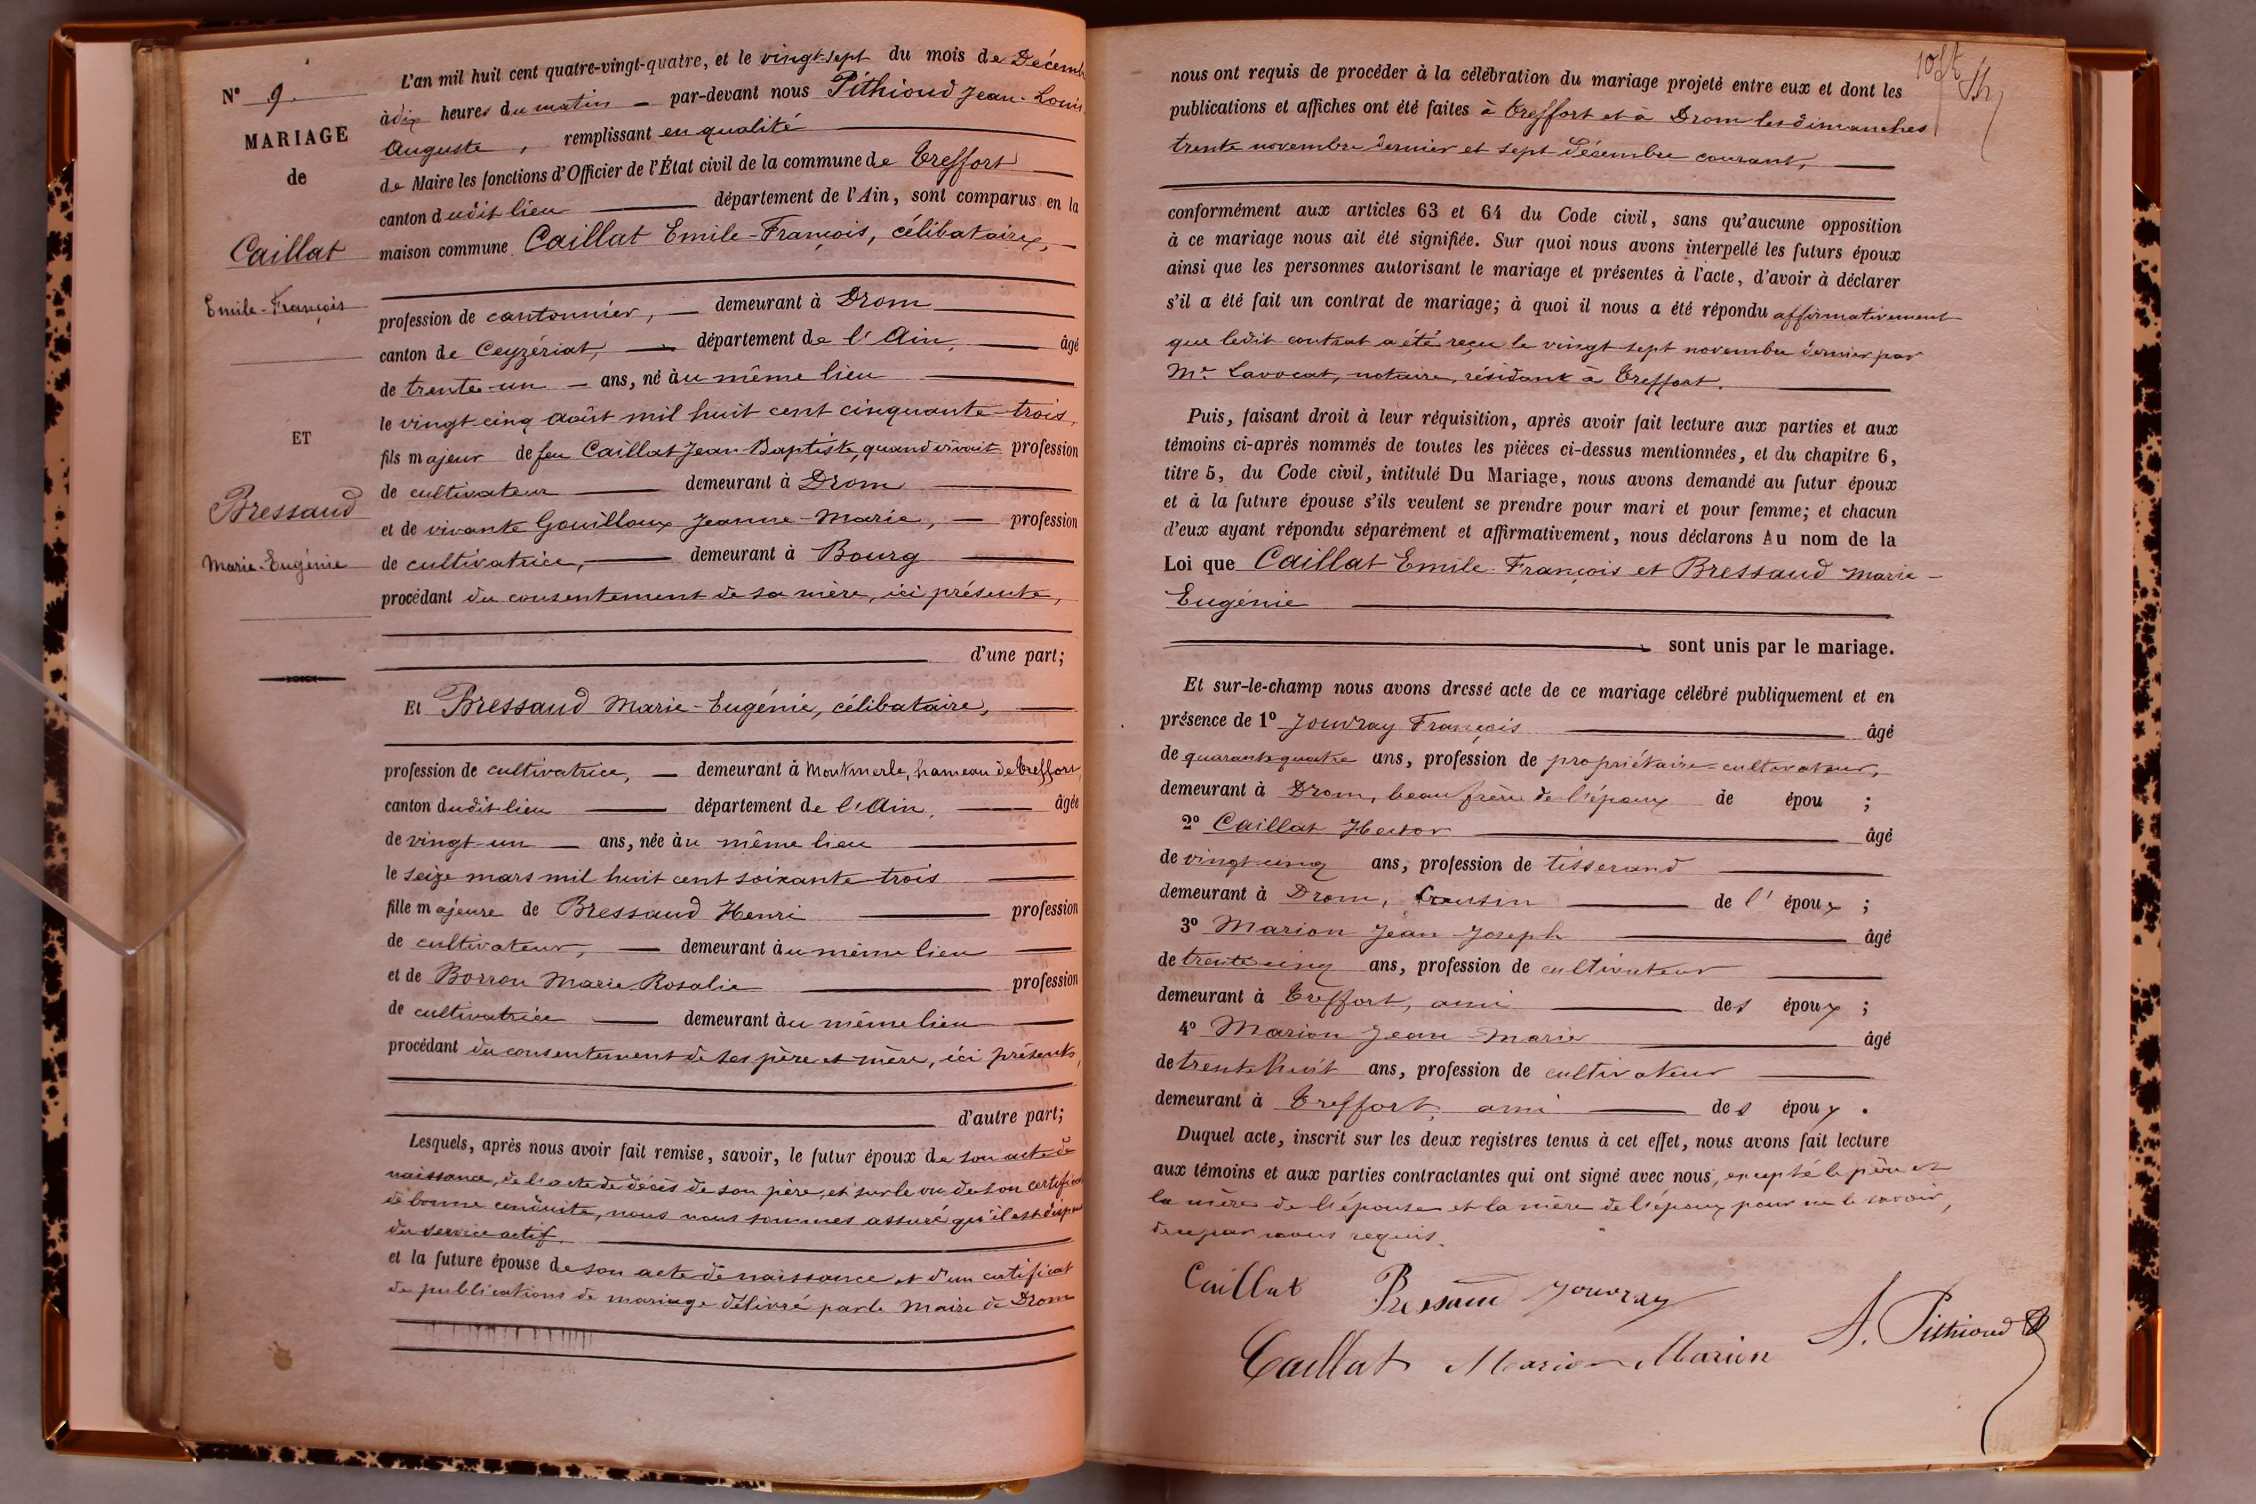 N° 9
MARIAGE
de
Caillat
Emile-François
ET
Bressaud
Marie-Eugénie
L'an mil huit cent quatre-vingt-quatre, et le vingt-sept du mois de Décemb
à dix heures du matin — par-devant nous Pithioud Jean-Louis
Auguste, remplissant en qualité
de Maire les fonctions d'Officier de l'État civil de la commune de Treffort
canton dudit lieu département de l'Ain, sont comparus en la
maison commune Caillat Emile-François, célibataire,
profession de cantonnier, — demeurant à Drom
canton de Ceyzériat, département de l'Ain, âgé
de trente-un — ans, né au même lieu
le vingt-cinq août mil huit cent cinquante-trois,
fils majeur de feu Caillat Jean-Baptiste, quand vivait profession
de cultivateur demeurant à Drom
et de vivante Gouilloux Jeanne-Marie, — profession
de cultivatrice, demeurant à Bourg
procédant du consentement de sa mère, ici présente,
d'une part;
Et Bressaud Marie-Eugénie, célibataire,
profession de cultivatrice, — demeurant à Montmerle, hameau de Treffort,
canton dudit lieu département de l'Ain, âgée
de vingt-un — ans, née au même lieu
le seize mars mil huit cent soixante-trois
fille majeure de Bressaud Henri profession
de cultivateur, — demeurant au même lieu
et de Borron Marie-Rosalie profession
de cultivatrice demeurant au même lieu
procédant du consentement de ses père et mère, ici présents,
d'autre part;
Lesquels, après nous avoir fait remise, savoir, le futur époux de son acte de
naissance, de l'acte de décès de son père, et sur le vu de son certificat
de bonne conduite, nous nous sommes assuré qu'il est dispensé
du service actif.
et la future épouse de son acte de naissance et d'un certificat
de publications de mariage délivré par le Maire de Drom
nous ont requis de procéder à la célébration du mariage projeté entre eux et dont les
publications et affiches ont été faites à Treffort et à Drom les dimanches
trente novembre dernier et sept Décembre courant,
conformément aux articles 63 et 64 du Code civil, sans qu'aucune opposition
à ce mariage nous ait été signifiée. Sur quoi nous avons interpellé les futurs époux
ainsi que les personnes autorisant le mariage et présentes à l'acte, d'avoir à déclarer
s'il a été fait un contrat de mariage; à quoi il nous a été répondu affirmativement
que ledit contrat a été reçu le vingt-sept novembre dernier par
Me Lavocat, notaire, résidant à Treffort.
Puis, faisant droit à leur réquisition, après avoir fait lecture aux parties et aux
témoins ci-après nommés de toutes les pièces ci-dessus mentionnées, et du chapitre 6,
titre 5, du Code civil, intitulé Du Mariage, nous avons demandé au futur époux
et à la future épouse s'ils veulent se prendre pour mari et pour femme; et chacun
d'eux ayant répondu séparément et affirmativement, nous déclarons Au nom de la
Loi que Caillat Emile-François et Bressaud Marie-
Eugénie
sont unis par le mariage.
Et sur-le-champ nous avons dressé acte de ce mariage célébré publiquement et en
présence de 1° Jouvray François âgé
de quarante-quatre ans, profession de propriétaire-cultivateur,
demeurant à Drom, beau frère de l'époux de épou ;
2° Caillat Hector âgé
de vingt-cinq ans, profession de tisserand
demeurant à Drom, cousin de l'époux ;
3° Marion Jean-Joseph âgé
de trente cinq ans, profession de cultivateur
demeurant à Treffort, ami des époux ;
4° Marion Jean-Marie âgé
de trente-huit ans, profession de cultivateur
demeurant à Treffort, ami des époux .
Duquel acte, inscrit sur les deux registres tenus à cet effet, nous avons fait lecture
aux témoins et aux parties contractantes qui ont signé avec nous, excepté le père et
la mère de l'épouse et la mère de l'époux pour ne le savoir,
de ce par nous requis.
Caillat Bressaud Jouvray
Caillat Marion Marion A. Pithioud